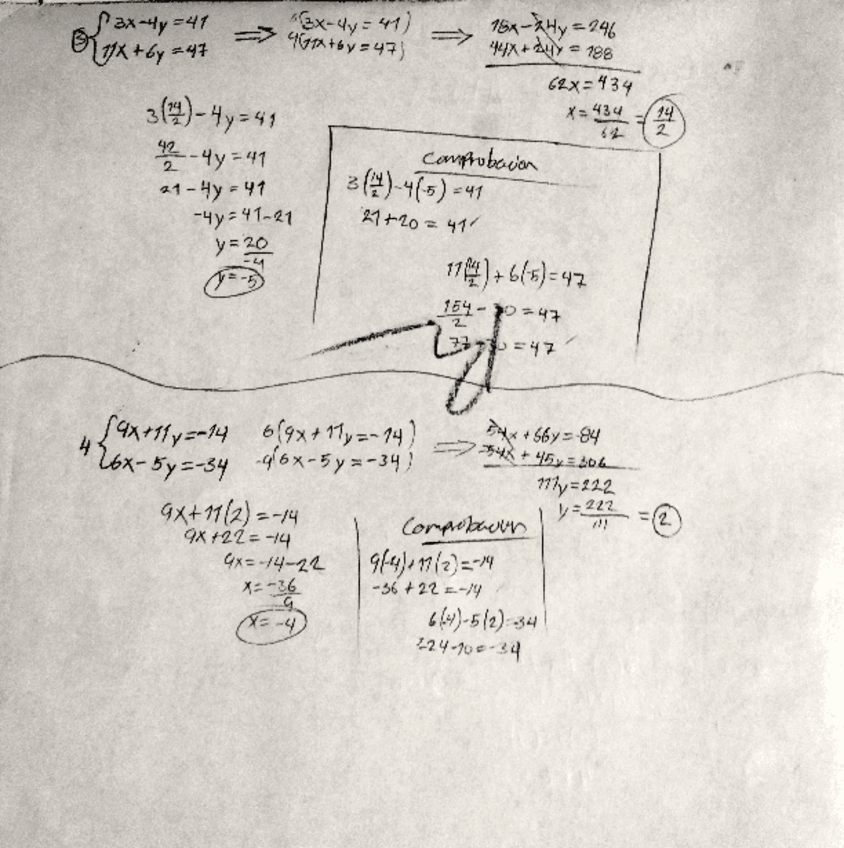 ③ { 3x-4y=41 ⟹ 6(3x-4y=41) ⟹ 18x-24y=246
11x+6y=47 4(11x+6y=47) 44x+24y=188
62x=434
x=434/62=14/2
3(14/2)-4y=41
42/2-4y=41
21-4y=41
-4y=41-21
y=20/-4
y=-5
Comprobacion
3(14/2)-4(-5)=41
21+20=41
11(14/2)+6(-5)=47
154/2-30=47
77-30=47
4 { 9x+11y=-14 6(9x+11y=-14) ⟹ 54x+66y=-84
6x-5y=-34 -9(6x-5y=-34) -54x+45y=306
111y=222
y=222/111=2
9x+11(2)=-14
9x+22=-14
9x=-14-22
x=-36/9
x=-4
Comprobacion
9(-4)+11(2)=-14
-36+22=-14
6(-4)-5(2)=-34
-24-10=-34